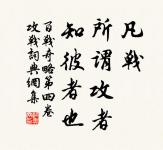 凡戰
所謂攻者
知彼者也
百戰奇略第四卷
攻戰詞典網集